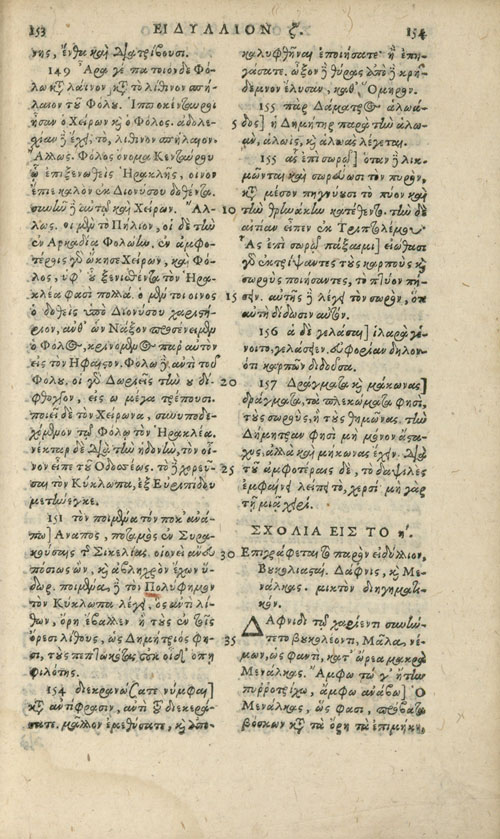 153 ΕΙΔΥΛΛΙΟΝ ζ. 154
νης, ἔνθα καὶ διατρίβουσι.
149 Ἆρά γέ πα τοιόνδε Φό-
λω κατὰ λάϊνον] κατὰ τὸ λίθινον σπή-
λαιον τοῦ Φόλου. Ἱπποκένταυροι
ἦσαν ὁ Χείρων καὶ ὁ Φόλος.
λίθινον σπήλαιον.
Ἄλλως. Φόλος ὄνομα Κενταύρου
ᾧ ἐπιξενωθεὶς Ἡρακλῆς, οἶνον
ἔπιε καλὸν ἐκ Διονύσου δοθέντα.
συνῆν ἢ αὐτῷ καὶ Χείρων. Ἄλ-
λως. οἱ μὲν τὸ Πήλιον, οἱ δὲ τὴν
ἐν Ἀρκαδίᾳ Φολόην. ἐν ἀμφο-
τέροις γὰρ ᾤκησε Χείρων, καὶ Φό-
λος, ὑφ' οὗ ξενισθέντα τὸν Ἡρα-
κλέα φασὶ πολλά. ὁ μέν τοι οἶνος
ὁ δοθεὶς ὑπὸ Διονύσου χαριστή-
ριον, ἀνθ' ὧν Νάξον προσένειμεν
ὁ Φόλος, κρινόμενος παρ' αὐτὸν
εἰς τὸν Ἥφαιστον. Φόλω ἢ ἀντὶ τοῦ
Φόλου. οἱ γὰρ Δωριεῖς τὴν ου δί-
φθογγον, εἰς ω μέγα τρέπουσι.
ποιεῖ δὲ τὸν Χείρωνα, συνυποδε-
χόμενον τῷ Φόλῳ τὸν Ἡρακλέα.
νέκταρ δὲ διὰ τὴν ἡδονὴν, τὸν οἶ-
νον εἶπε τοῦ Ὀδυσσέως. τὸ ἢ χορεῦ-
σαι τὸν Κύκλωπα, ἐξ Εὐριπίδου
μετήνεγκε.
151 τὸν ποιμένα τόν ποκ' ἀνά-
πω] Ἄναπος, ποταμὸς ἐν Συρα-
κούσαις τῆς Σικελίας. οἱονεὶ ἄνευ
πόσιως ὢν, καὶ ἀβληχρὸν ἔχων ὕ-
δωρ. ποιμένα, ἢ τὸν Πολύφημον
τὸν Κύκλωπα λέγει, ὃς ἀντὶ λί-
θων, ὄρη ἔβαλλεν ἢ τοὺς ἐν τοῖς
ὄρεσι λίθους, ὡς Δημήτριός φη-
σι, τοὺς πεπτωκότας οὐκ οἶδ' ὅπη
φιλότης.
154 διεκρανώσατε νύμφαι]
κατ' ἀντίφρασιν, ἀντὶ τοῦ διεκερά-
σατε. μᾶλλον ἐμεθύσατε, καὶ ἀπο-
καλυφθῆναι ἐποιήσατε· ἢ ἐπη-
γάσατε. ὤϊξον ἢ θύρας ἀπὸ ἢ κρή-
δεμνον ἔλυσαν, καθ' Ὅμηρον.
155 πὰρ Δάματρος ἀλωά-
5 δος] ἡ Δημήτηρ παρὰ τὴν ἅλω-
αν, ἀλωὶς, καὶ ἀλωὰς λέγεται.
155 ἇς ἐπὶ σωρῷ] ὅταν ἢ λικ-
μῶνται καὶ σωρεύωσι τὸν πυρὸν,
κατὰ μέσον πηγνύουσι τὸ πτύον καὶ
10 τὴν θρινάκην κατέθεντο. τὴν δὲ
αἰτίαν εἶπεν ἐκ Τριπτολέμου
Ἇς ἐπὶ σωρῷ πάξαιμι] εἰώθασι
γὰρ ἐκτρίψαντες τοὺς καρποὺς καὶ
σωροὺς ποιήσαντες, τὸ πτύον πή-
15 σσειν. αὐτῆς ἢ λέγει τὸν σωρὸν, ὅτι
αὐτὴ δίδωσιν αὐτόν.
156 ἁ δὲ γελάσαι] ἱλαρὰ γέ-
νοιτο, γελάσειεν. εὐφορίαν δηλον-
ότι καρπῶν διδοῦσα.
20 157 Δράγματα καὶ μάκωνας]
δράγματα, τὰ πλεκόμενα φησὶ,
τοὺς σωροὺς, ἢ τοὺς θημῶνας. τὴν
Δήμητραν φησὶ μὴ μόνον ἀστά-
χυς, ἀλλὰ καὶ μήκωνας ἔχειν. διὰ
25 τοῦ ἀμφοτέραις δὲ, τὸ δαψιλὲς
ἐμφαίνει. λείπει τὸ, χερσί. μὴ γὰρ
τῇ μιᾷ χειρί.
ΣΧΟΛΙΑ ΕΙΣ ΤΟ η'.
30 Ἐπιγράφεται τὸ παρὸν εἰδύλλιον,
Βουκολιασταὶ. Δάφνις, καὶ Με-
νάλκας. μικτὸν διηγηματι-
κόν.
Δάφνιδι τῷ χαρίεντι συνήν-
35 τετο βουκολέοντι, Μᾶλα νέ-
μων, ὡς φαντὶ, κατ' ὤρεα μακρὰ
Μενάλκας. Ἄμφω τώ γ' ἤτην
πυρροτρίχω, ἄμφω ἀνάβω] Ὁ
Μενάλκας, ὥς φασι, πρόβατα
βόσκων κατὰ τὰ ὄρη τὰ ἐπιμήκη,